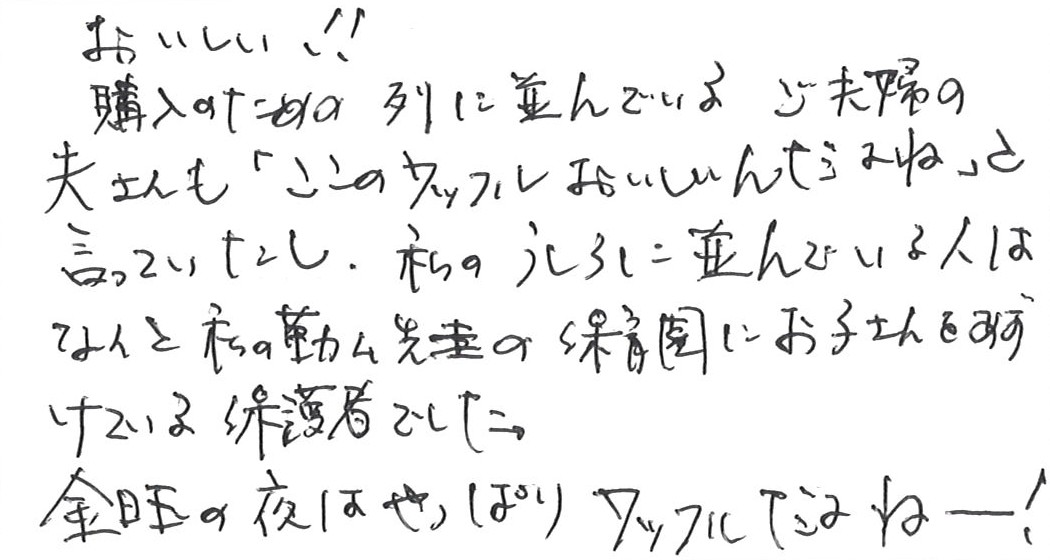 おいしい!!
購入のための列に並んでいるご夫婦の
夫さんも「ここのワッフルおいしいんだよね」と
言っていたし、私のうしろに並んでいる人は
なんと私の勤ム先の保育園にお子さんを預
けている保護者でした。
金曜の夜はやっぱりワッフルだよねー!